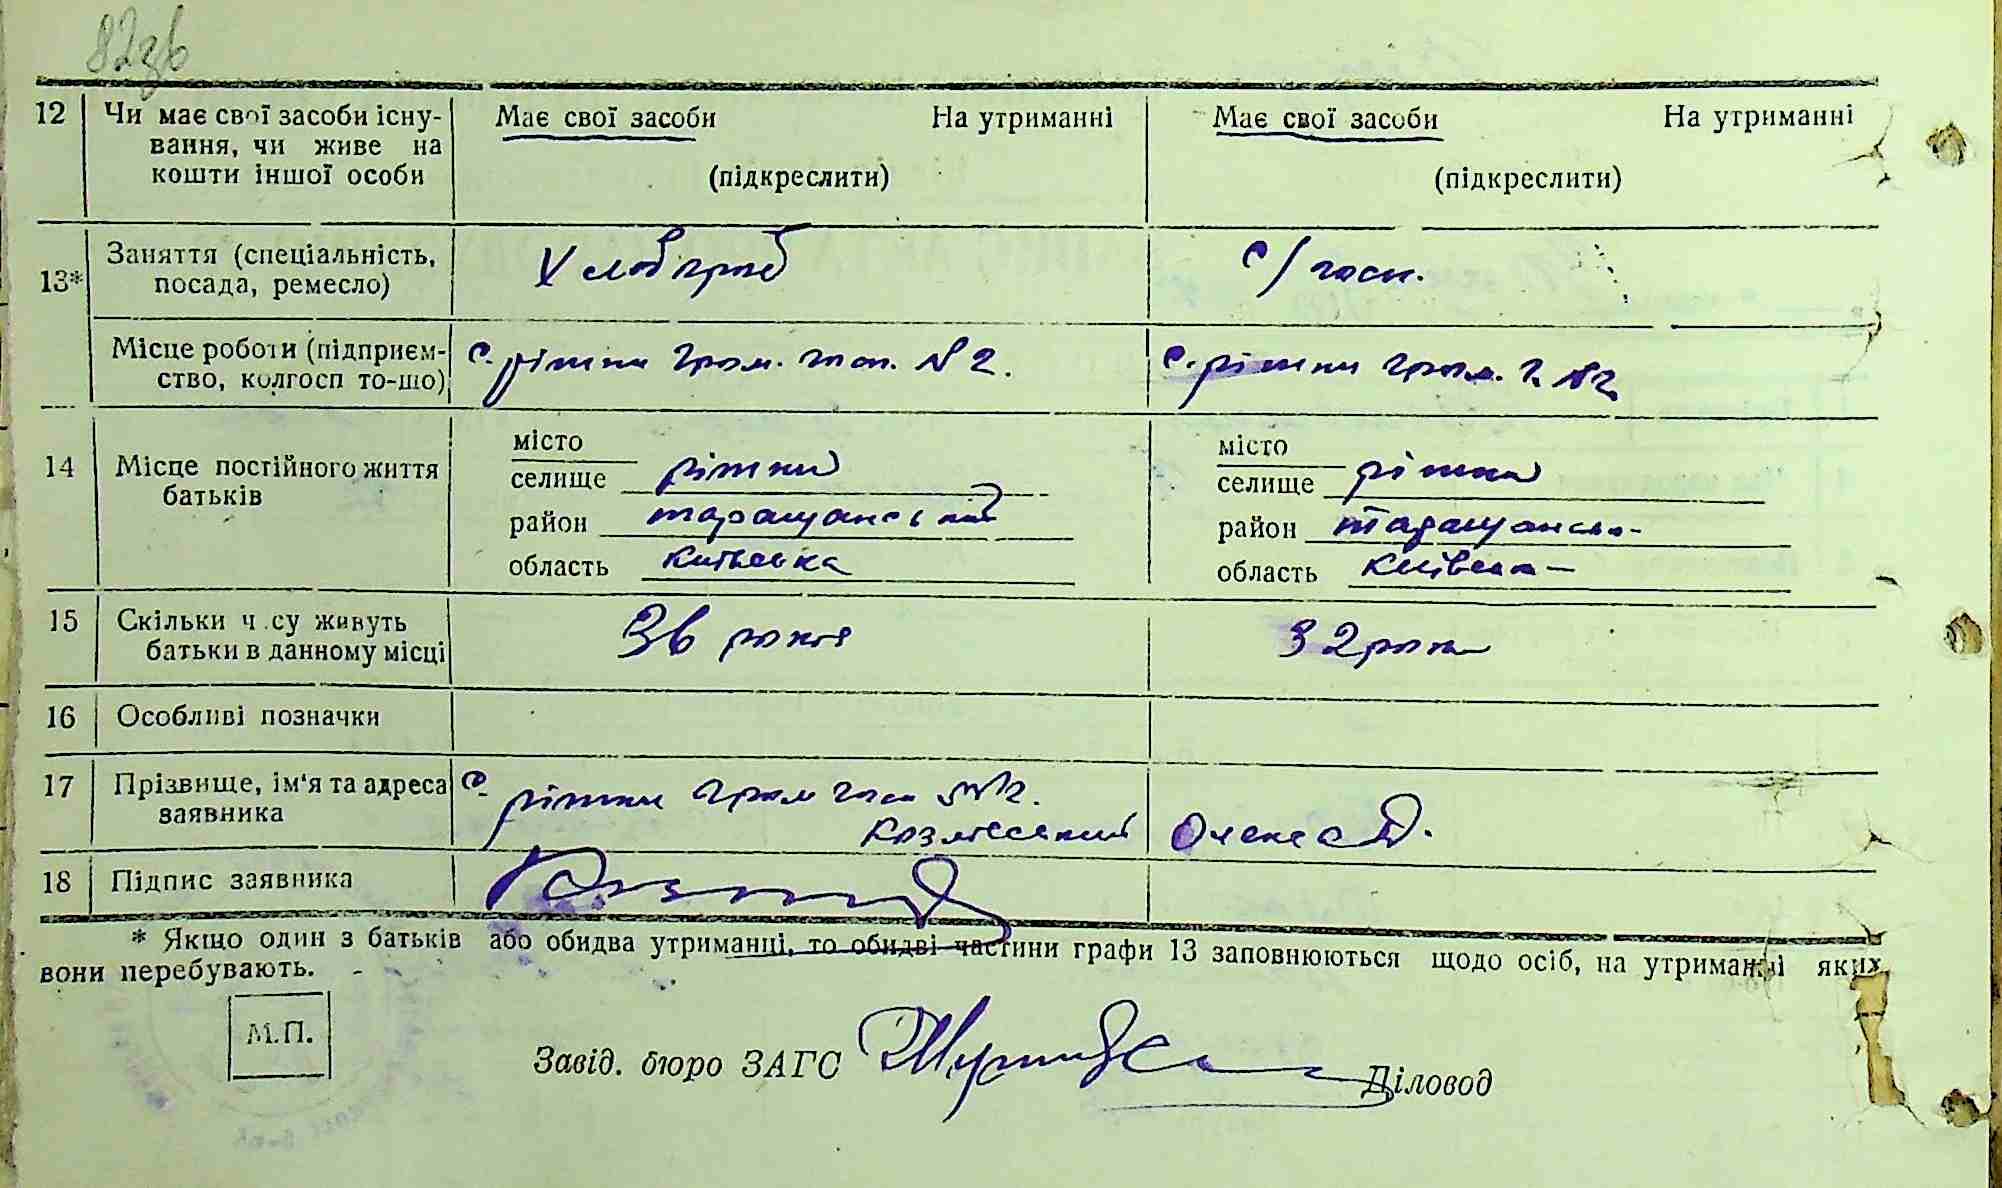 82зв
12 Чи має свої засоби існу- Має свої засоби На утриманні Має свої засоби На утриманні
вання, чи живе на
кошти іншої особи (підкреслити) (підкреслити)
13* Заняття (спеціальність, Хлібороб с/госп.
посада, ремесло)
Місце роботи (підприєм- с. ріжки гром. госп. № 2. с. ріжки гром. г. № 2
ство, колгосп то-що)
14 Місце постійного життя батьків
місто місто
селище ріжки селище ріжки
район таращанський район таращанськ-
область київська область київська
15 Скільки ч.су живуть 36 років 32 роки
батьки в данному місці
16 Особливі позначки
17 Прізвище, ім'я та адреса с. ріжки гром госп №2.
заявника Олекса
18 Підпис заявника
* Якщо один з батьків або обидва утриманці, то обидві частини графи 13 заповнюються щодо осіб, на утриманні яких
вони перебувають.
М.П.
Завід. бюро ЗАГС Діловод